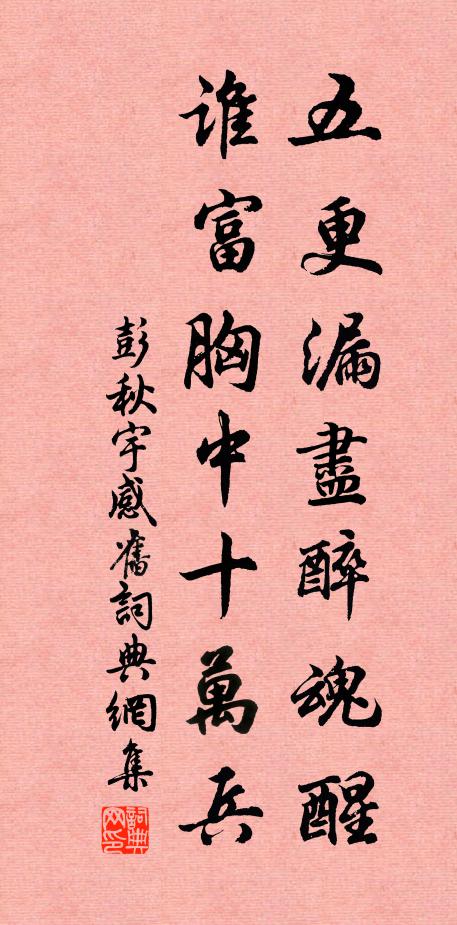 五更漏盡醉魂醒
誰富胸中十萬兵
彭秋宇感舊詞典網集
詞典
网印